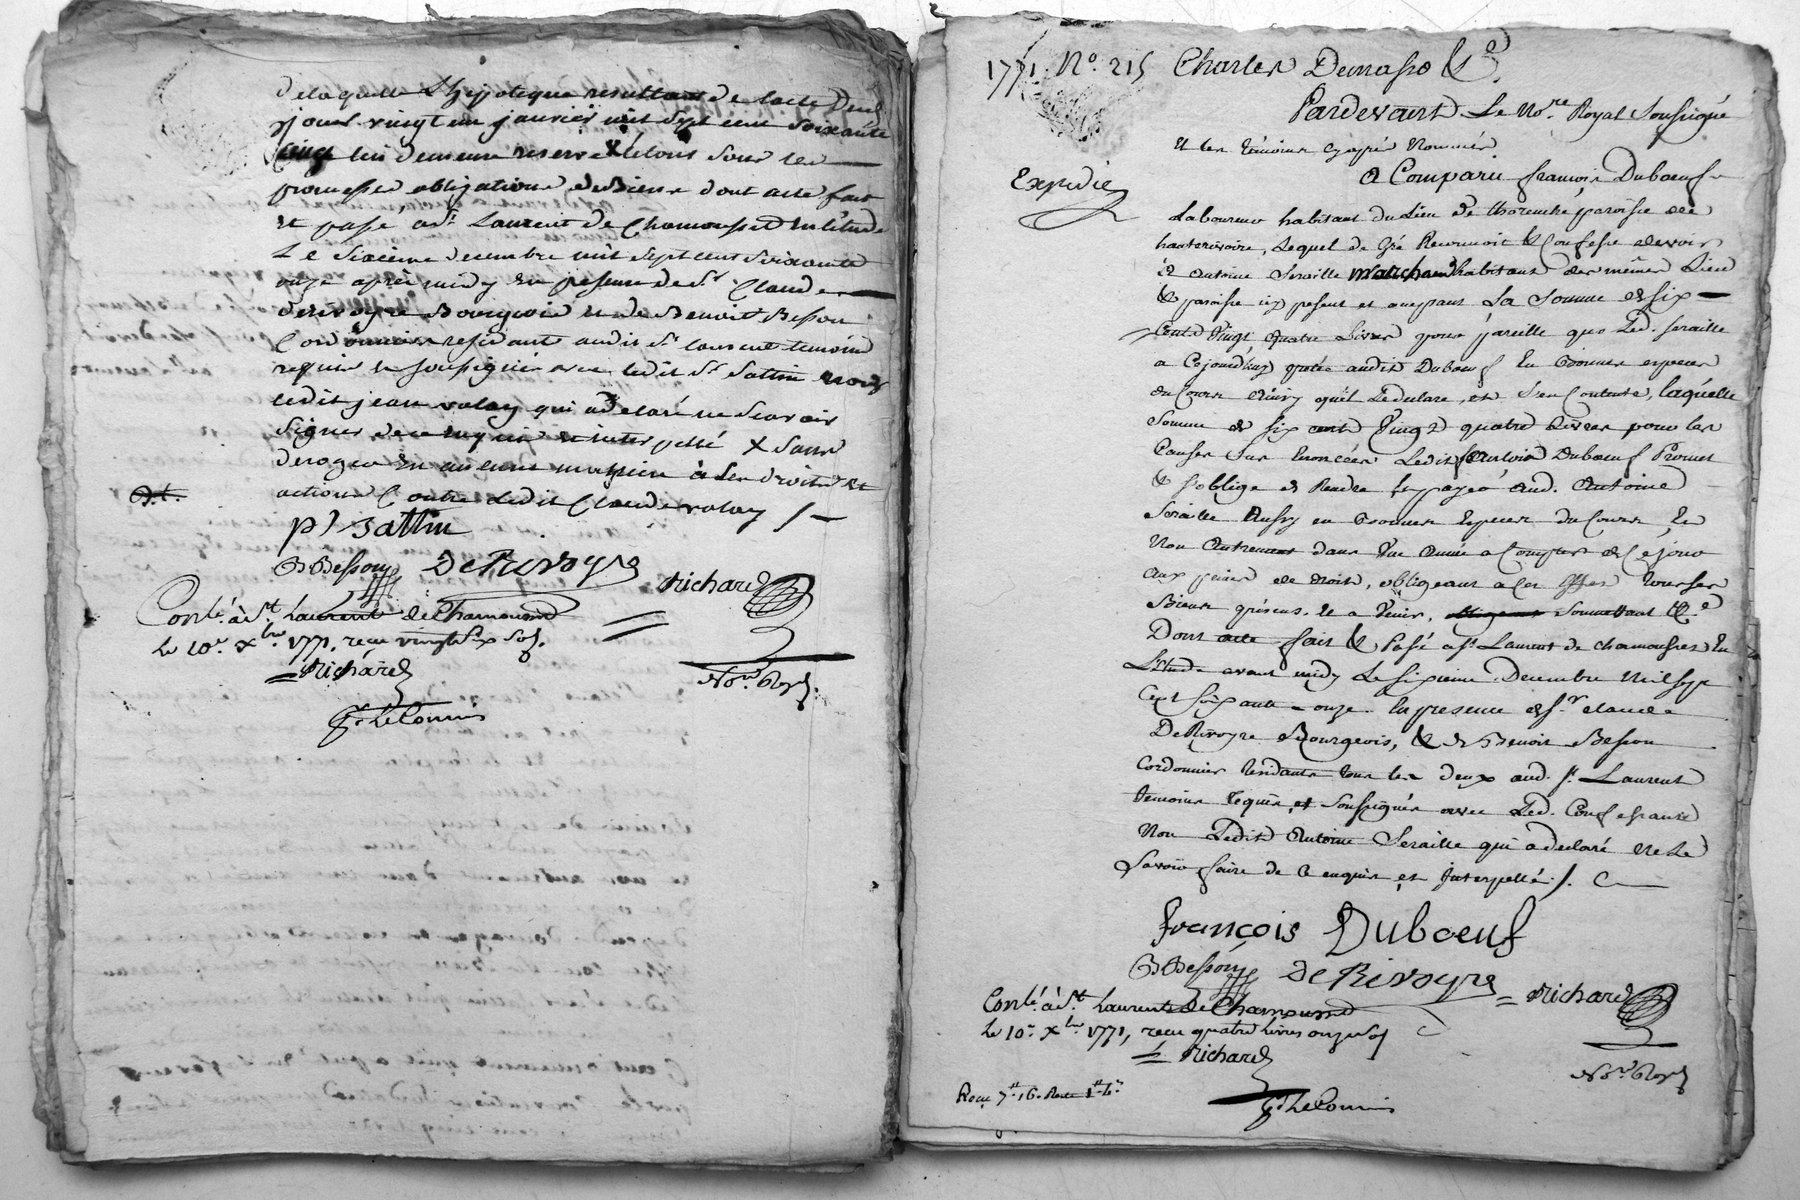 de laquelle L'hypoteque resultant de lacte Deuil
jour vingt un janvier mil Sept cent soixante
Cinq lui demeure reservé X le tout sous les
promesses obligations de Biens dont acte fait
et passé a St. Laurent de Chamousset en létude
Le Sixieme decembre mil Sept cent soixante
onze après midy en presence de Sr. Claude
derivoyre Bourgeois et de Benoit Besson
Cordonnier residants audit St. laurent temoins
requis et soussignés avec ledit Sr. Sattin non
ledit jean volay qui a declaré ne scavoir
signer de ce enquis et interpellé X sans
deroger en aucune maniere à ses droits et
actions Contre Ledit Claude volay /
pr Sattin
B Besson DeRivoyre
Richard
Conlé. à St. Laurent de Chamousset
le 10e. Xbre. 1771. recu vingt six sols.
Richard
Nore. Royal.
Gd. Lecomis
1771. No. 215 Charles Demasso &a.
Pardevant Le Nore. Royal Soussigné
Et les témoins cy après Nommés
Expedié
A Comparu françois Duboeuf
Laboureur habitant du Lieu de thorenche paroisse de
hauterivoire, Lequel de Gré Reconnoit & Confesse devoir
à Antoine Seraille marchand habitant des mêmes Lieu
& paroisse icy present et acceptant La Somme de six
Cent Vingt quatre Livres pour pareille que Led. Seraille
a Cejourd'huy prêté audit Duboeuf En Bonnes especes
du Cours ainsy qu'il Le declare, et s'en Contente, laquelle
Somme de six cent Vingt quatre Livres pour les
Causes Sus Enoncées Ledit Duboeuf Promet
& s'oblige de Rendre et payer aud. Antoine
Seraille Aussy en Bonnes Especes du Cours Et
Non Autrement dans Une Année a Compter de Ce jour
aux peines de droit, obligeant a ces effets tous ses
Biens présens et a Venir, Soumettant &a.
Dont acte fait & Passé a St. Laurent de chamousset En
L'étude avant midy Le Sixieme Decembre Mil sept
Cent Soixante onze En presence de Sr. claude
DeRivoyre Bourgeois, & de Benoit Besson
Cordonnier Residants tous les deux aud. St. Laurent
temoins requis et soussignés avec Led. Confessant
Non Ledit Antoine Seraille qui a declaré Ne Le
Savoir faire de Ce enquis et Interpellé /.
François Duboeuf
B Besson De Rivoyre
Richard
Conlé. à St. Laurent de Chamousset
le 10e. Xbre. 1771, recu quatre livres onze sols
Richard
Nore. Royal
Gd. Lecomis